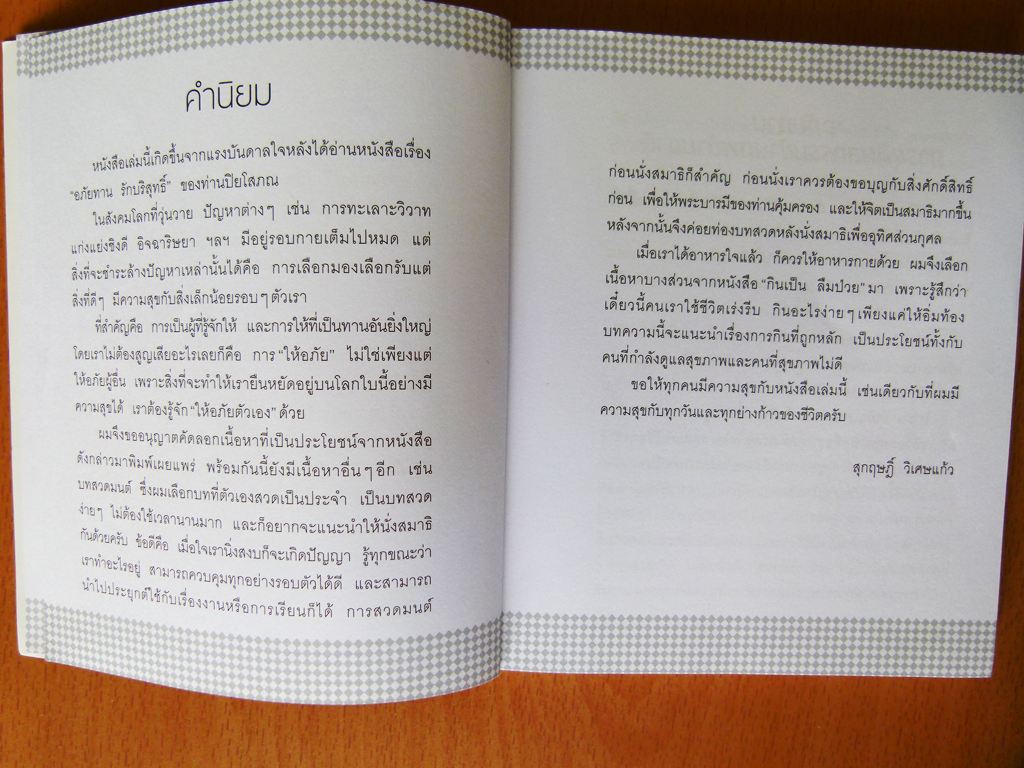 คำนิยม
หนังสือเล่มนี้เกิดขึ้นจากแรงบันดาลใจหลังได้อ่านหนังสือเรื่อง
"อภัยทาน รักบริสุทธิ์" ของท่านปิยโสภณ
ในสังคมโลกที่วุ่นวาย ปัญหาต่างๆ เช่น การทะเลาะวิวาท
แก่งแย่งชิงดี อิจฉาริษยา ฯลฯ มีอยู่รอบกายเต็มไปหมด แต่
สิ่งที่จะชำระล้างปัญหาเหล่านั้นได้คือ การเลือกมองเลือกรับแต่
สิ่งที่ดีๆ มีความสุขกับสิ่งเล็กน้อยรอบๆตัวเรา
ที่สำคัญคือ การเป็นผู้ที่รู้จักให้ และการให้ที่เป็นทานอันยิ่งใหญ่
โดยเราไม่ต้องสูญเสียอะไรเลยก็คือ การ "ให้อภัย" ไม่ใช่เพียงแต่
ให้อภัยผู้อื่น เพราะสิ่งที่จะทำให้เรายืนหยัดอยู่บนโลกใบนี้อย่างมี
ความสุขได้ เราต้องรู้จัก "ให้อภัยตัวเอง" ด้วย
ผมจึงขออนุญาตคัดลอกเนื้อหาที่เป็นประโยชน์จากหนังสือ
ดังกล่าวมาพิมพ์เผยแพร่ พร้อมกันนี้ยังมีเนื้อหาอื่นๆอีก เช่น
บทสวดมนต์ ซึ่งผมเลือกบทที่ตัวเองสวดเป็นประจำ เป็นบทสวด
ง่ายๆ ไม่ต้องใช้เวลานานมาก และก็อยากจะแนะนำให้นั่งสมาธิ
กันด้วยครับ ข้อดีคือ เมื่อใจเรานิ่งสงบก็จะเกิดปัญญา รู้ทุกขณะว่า
เราทำอะไรอยู่ สามารถควบคุมทุกอย่างรอบตัวได้ดี และสามารถ
นำไปประยุกต์ใช้กับเรื่องงานหรือการเรียนก็ได้ การสวดมนต์
ก่อนนั่งสมาธิก็สำคัญ ก่อนนั่งเราควรต้องขอบุญกับสิ่งศักดิ์สิทธิ์
ก่อน เพื่อให้พระบารมีของท่านคุ้มครอง และให้จิตเป็นสมาธิมากขึ้น
หลังจากนั้นจึงค่อยท่องบทสวดหลังนั่งสมาธิเพื่ออุทิศส่วนกุศล
เมื่อเราได้อาหารใจแล้ว ก็ควรให้อาหารกายด้วย ผมจึงเลือก
เนื้อหาบางส่วนจากหนังสือ "กินเป็น ลืมป่วย" มา เพราะรู้สึกว่า
เดี๋ยวนี้คนเราใช้ชีวิตเร่งรีบ กินอะไรง่ายๆเพียงแค่ให้อิ่มท้อง
บทความนี้จะแนะนำเรื่องการกินที่ถูกหลัก เป็นประโยชน์ทั้งกับ
คนที่กำลังดูแลสุขภาพและคนที่สุขภาพไม่ดี
ขอให้ทุกคนมีความสุขกับหนังสือเล่มนี้ เช่นเดียวกับที่ผมมี
ความสุขกับทุกวันและทุกย่างก้าวของชีวิตครับ
สุกฤษฎิ์ วิเศษแก้ว